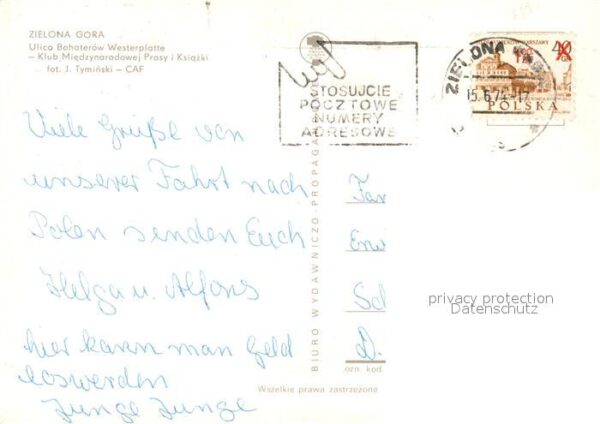 ZIELONA GÓRA
Ulica Bohaterów Westerplatte
– Klub Międzynarodowej Prasy i Książki
fot. J. Tymiński – CAF
STOSUJCIE
POCZTOWE
NUMERY
ADRESOWE
ZIELONA
15.6.74-17
POLSKA
40
Viele Grüße von
unserer Fahrt nach
Polen senden Euch
Helga u. Alfons
hier kann man Geld
loswerden
Junge Junge
Fam
Erw
Sch
D.
ozn. kod
BIURO WYDAWNICZO-PROPAGA
Wszelkie prawa zastrzeżone
privacy protection
Datenschutz